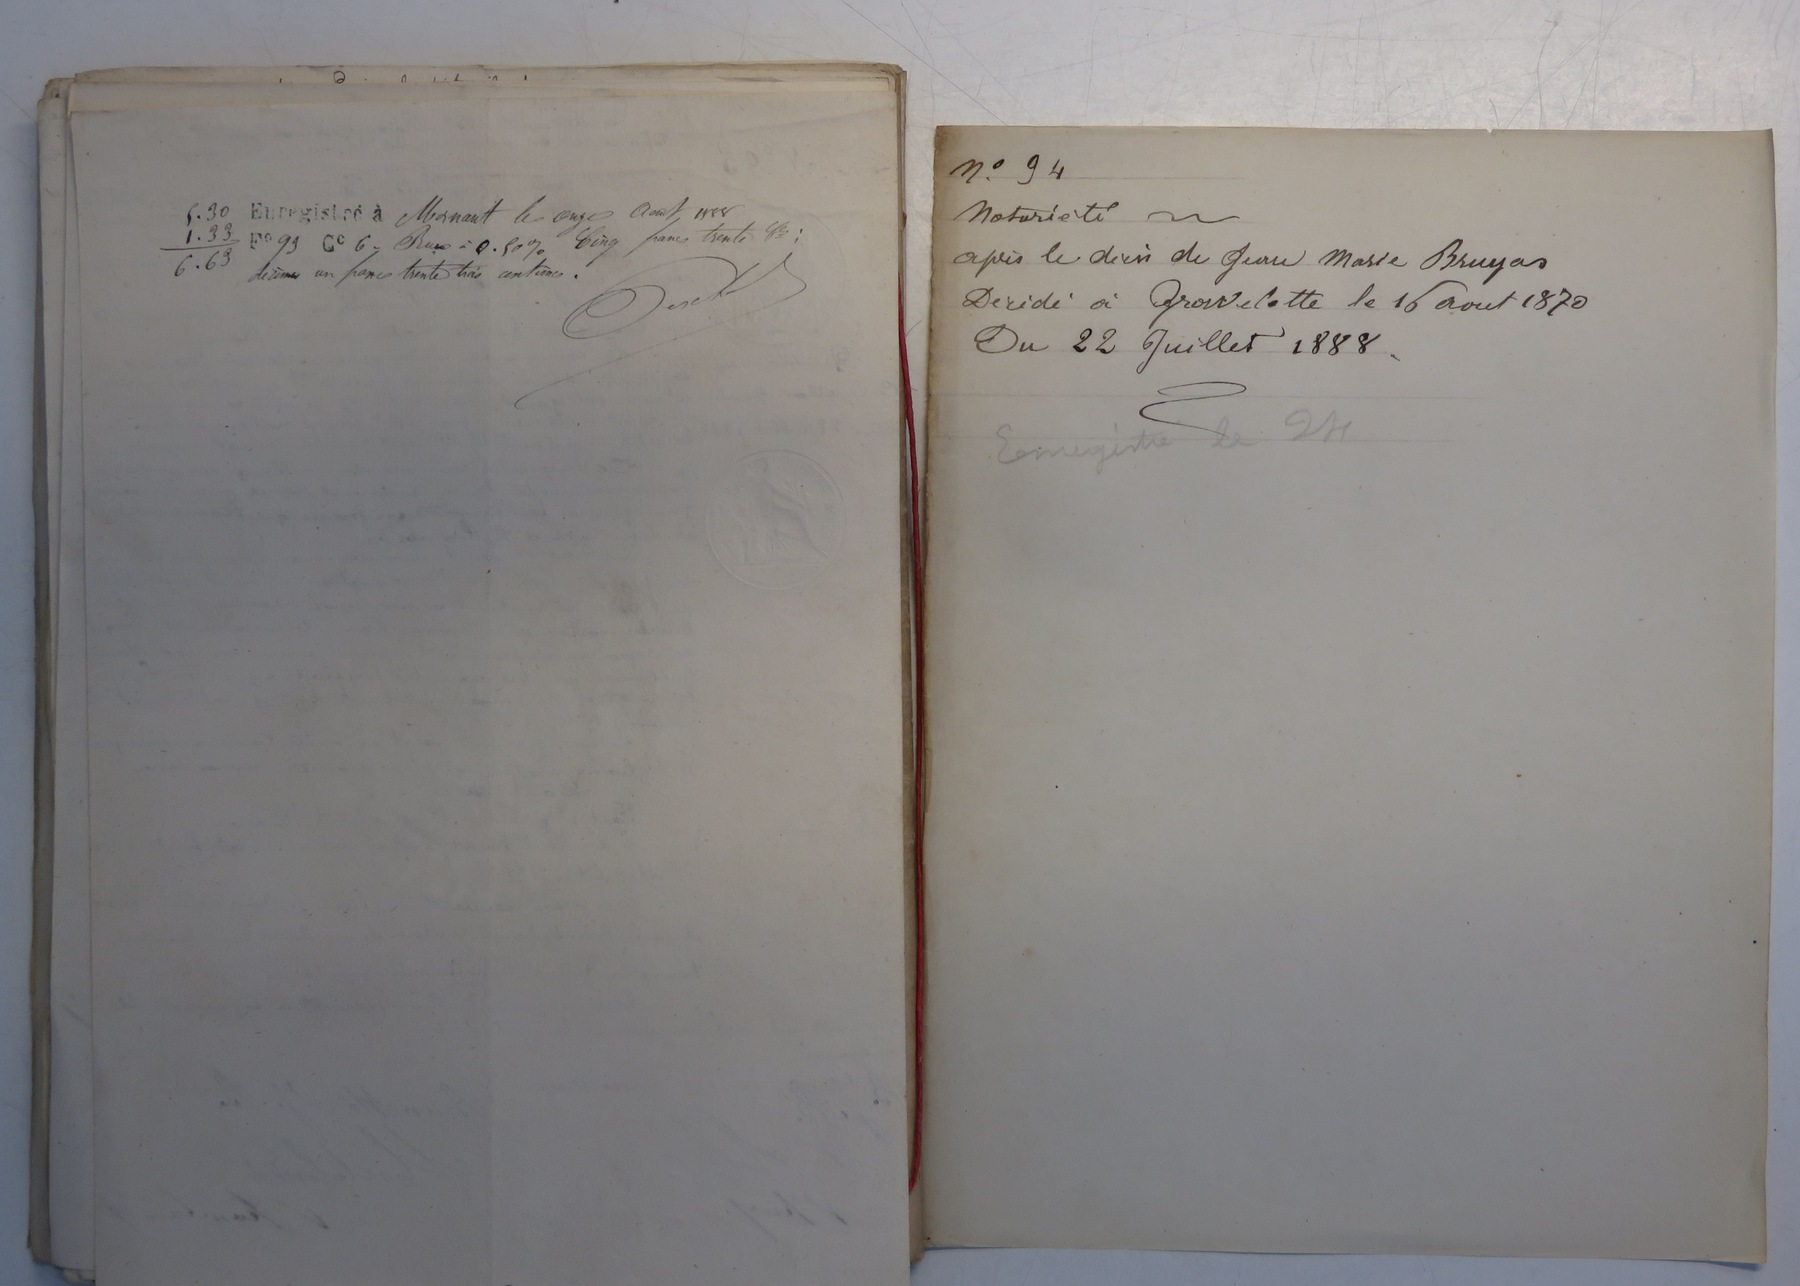 5.30 Enregistré à Mornant le onze Août 1888
1.33 Fo 93 Ce 6. Reçu à 0.50% Cinq francs trente c/s;
6.63 décimes un franc trente trois centimes.
N.o 94
Notoriété
après le décès de Jean Marie Bruyas
Décédé à Gravelotte le 16 aout 1870
Du 22 Juillet 1888.
Enregistré le 24